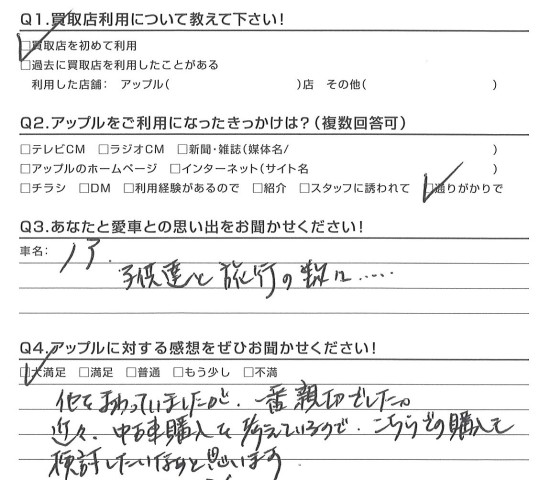 Q1.買取店利用について教えて下さい!
□買取店を初めて利用
□過去に買取店を利用したことがある
利用した店舗: アップル( )店 その他( )
Q2.アップルをご利用になったきっかけは?(複数回答可)
□テレビCM □ラジオCM □新聞・雑誌(媒体名/ )
□アップルのホームページ □インターネット(サイト名 )
□チラシ □DM □利用経験があるので □紹介 □スタッフに誘われて □通りがかりで
Q3.あなたと愛車との思い出をお聞かせください!
車名: ノア.
子供達と旅行の数に……
Q4.アップルに対する感想をぜひお聞かせください!
□大満足 □満足 □普通 □もう少し □不満
他をまわっていましたが、一番親切でした。
近々、中古車購入を考えているので、こちらでの購入も
検討したいなあと思います